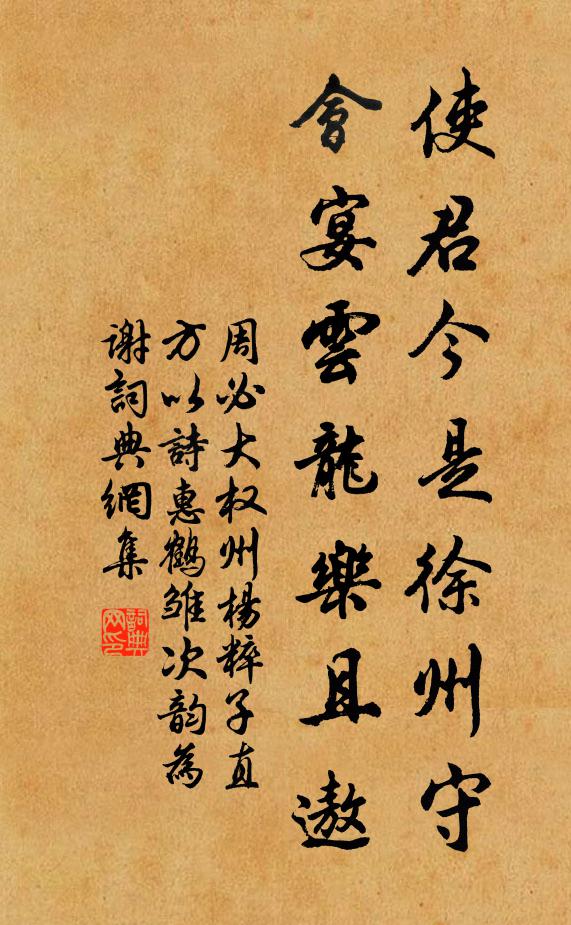 使君今是徐州守
會宴雲龍樂且遨
周必大权州楊粹子直
方以詩惠鶴雏次韵為
谢詞典網集
詞典网印